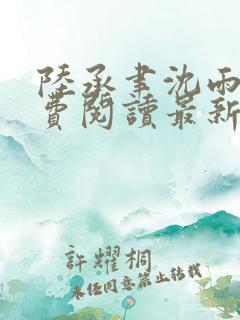 陸承聿沈雨
費閱讀最新
許耀桐
未经同意禁止转载